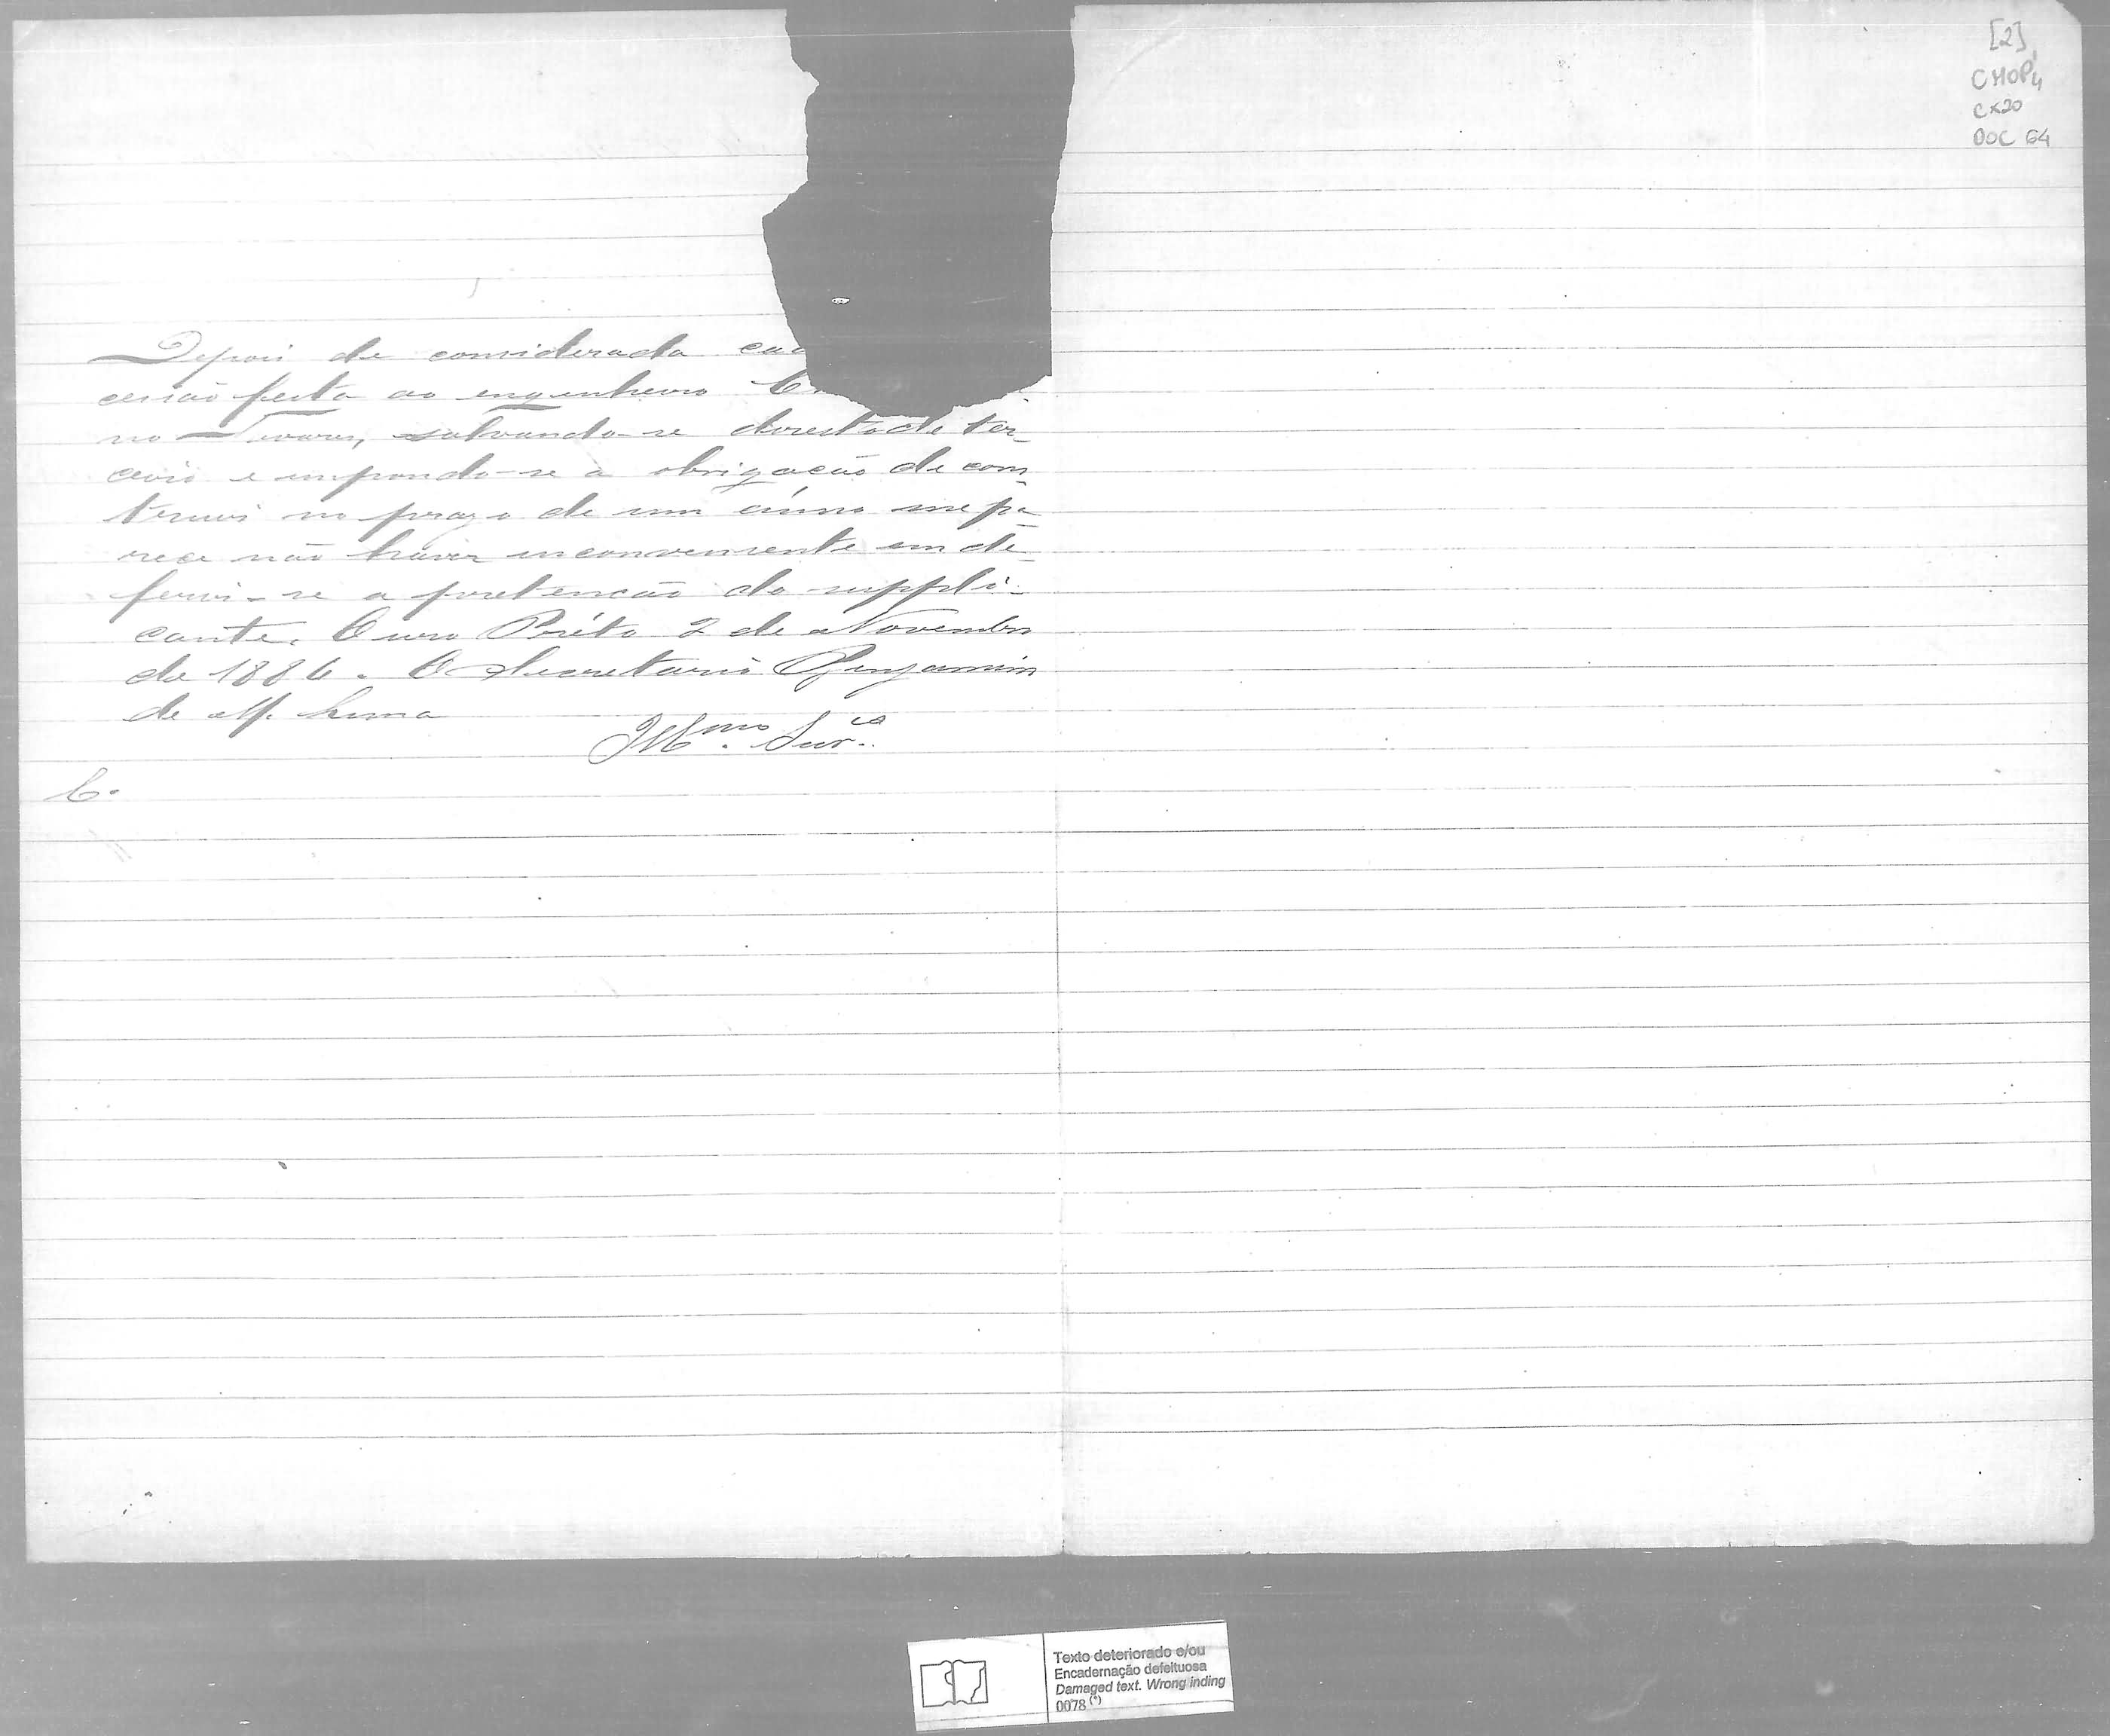 [2]
CMOP 1/4
CX20
DOC 64
Depois de considerada ca
cessão feita ao engenheiro C
no Tavares, salvando-se direito de ter-
ceiro e impondo-se a obrigação de cons-
truir no prazo de um anno me pa-
rece não haver inconveniente em de-
ferir-se a pretenção do suppli-
cante. Ouro Preto 2 de Novembro
de 1886. O Secretario Benjamim
de M. Lima
Illmo. Snr.es
C.
Texto deteriorado e/ou
Encadernação defeituosa
Damaged text. Wrong inding
0078 (*)